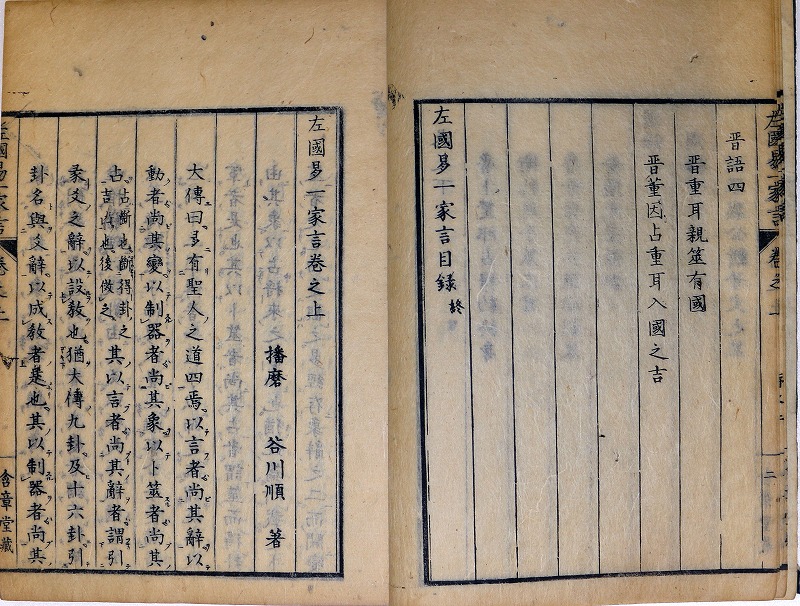 左國易一家言 卷之上 二
晉語四
晉重耳親筮有國
晉董因占重耳入國之吉
左國易一家言目錄 終
左國易一家言卷之上
播磨 谷川順 著
大傳曰易有聖人之道四焉以言者尚其辭以
動者尚其變以制器者尚其象以卜筮者尚其
占占斷也斷得卦之吉凶也後倣之其以言者尚其辭者謂引
彖爻之辭以設敎也猶大傳九卦及十六卦引
卦名與爻辭以成敎者是也其以制器者尚其
左國易一家言 卷之上 含章堂藏